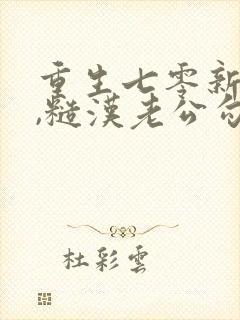 重生七零新
,糙漢老公勾
杜彩雲